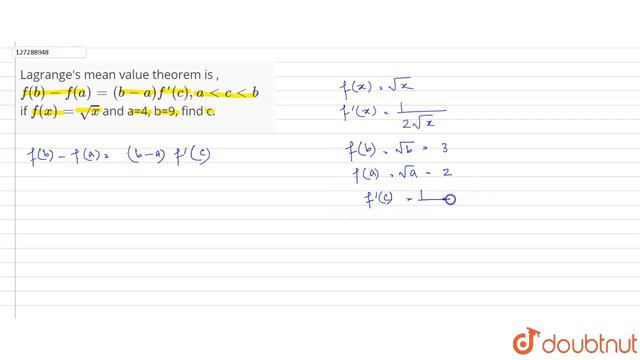 127288948
Lagrange's mean value theorem is ,
f(b) − f(a) = (b − a)f'(c), a < c < b
if f(x) = √x and a=4, b=9, find c.
f(b) - f(a) = (b-a) f'(c)
f(x) = √x
f'(x) = 1/2√x
f(b) = √b = 3
f(a) = √a = 2
f'(c) = 1
doubtnut